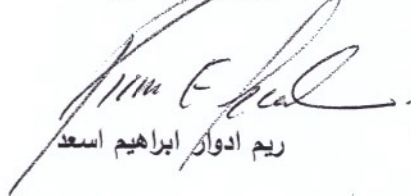 ريم ادوار ابراهيم اسعد